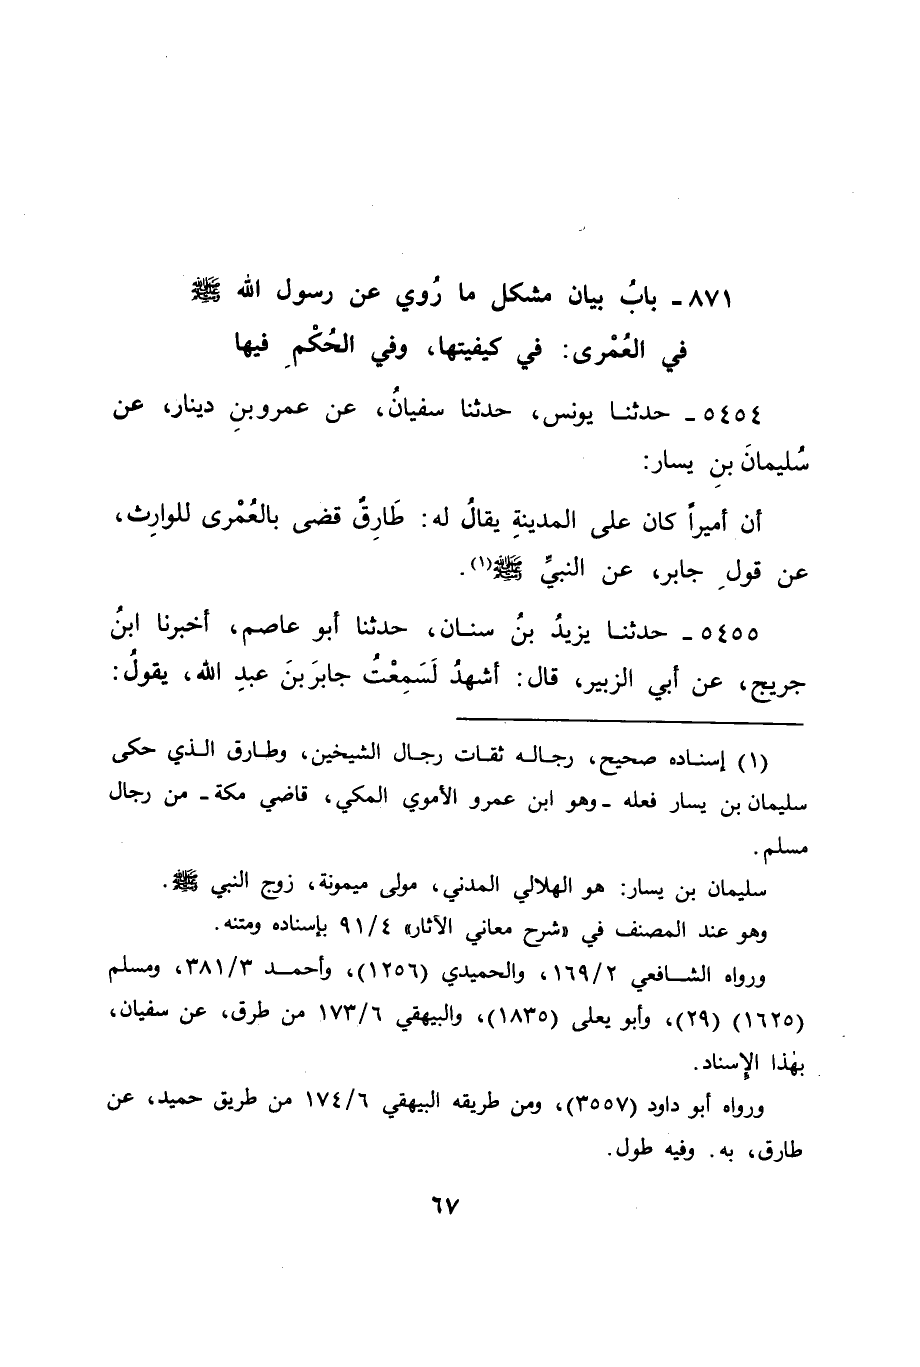 ٨٧١ ـ بابُ بيان مشكل ما رُوي عن رسول الله ﷺ
في العُمْرى: في كيفيتها، وفي الحُكْمِ فيها
٥٤٥٤ ـ حدثنـا يونس، حدثنا سفيانُ، عن عمرو بنِ دينار، عن
سُليمانَ بنِ يسار:
أن أميراً كان على المدينةِ يقالُ له: طَارِقٌ قضى بالعُمْرى للوارِث،
عن قولِ جابر، عن النبيِّ ﷺ(١).
٥٤٥٥ ـ حدثنـا يزيدُ بنُ سنـان، حدثنا أبو عاصم، أخبرنا ابنُ
جريج، عن أبي الزبير، قال: أشهدُ لَسَمِعْتُ جابرَ بنَ عبدِ الله، يقولُ:
(١) إسنـاده صحيح، رجـالـه ثقـات رجـال الشيخين، وطـارق الـذي حكى
سليمان بن يسار فعله ـ وهو ابن عمرو الأموي المكي، قاضي مكة ـ من رجال
مسلم.
سليمان بن يسار: هو الهلالي المدني، مولى ميمونة، زوج النبي ﷺ.
وهو عند المصنف في «شرح معاني الآثار» ٩١/٤ بإسناده ومتنه.
ورواه الشـافعي ١٦٩/٢، والحميدي (١٢٥٦)، وأحمـد ٣٨١/٣، ومسلم
(١٦٢٥) (٢٩)، وأبو يعلى (١٨٣٥)، والبيهقي ١٧٣/٦ من طرق، عن سفيان،
بهٰذا الإسناد.
ورواه أبو داود (٣٥٥٧)، ومن طريقه البيهقي ١٧٤/٦ من طريق حميد، عن
طارق، به. وفيه طول.
٦٧